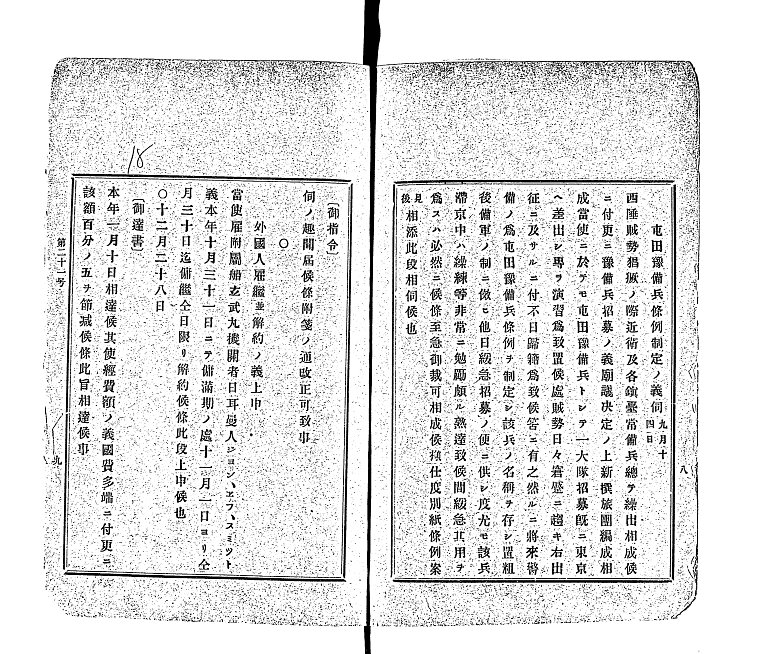 屯田豫備兵條例制定ノ義伺 九月十四日
西陲賊勢猖獗ノ際近衛及各鎭臺常備兵總テ繰出相成候
ニ付更ニ豫備兵招募ノ義廟議決定ノ上新撰旅團編成相
成當使ニ於テモ屯田豫備兵トシテ一大隊招募既ニ東京
ヘ差出シ專ラ演習爲致置候處賊勢日々窘蹙ニ趣キ右出
征ニ及サルニ付不日歸籍爲致候筈ニ有之然ルニ將來警
備ノ爲屯田豫備兵條例ヲ制定シ該兵ノ名稱ヲ存シ置粗
後備軍ノ制ニ倣ヒ他日緩急招募ノ便ニ供シ度尤モ該兵
滯京中ハ操練等非常ニ勉勵頗ル熟達致候間緩急其用ヲ
爲スハ必然ニ候條至急御裁可相成候樣仕度別紙條例案
見後 相添此段相伺候也
八
〔御指令〕
伺ノ趣聞屆候條附箋ノ通改正可致事
〇
外國人雇繼並解約ノ義上申
當使雇附屬船玄武丸機關者日耳曼人ジョン、エフ、スミット
義本年十月三十一日ニテ傭滿期ノ處十一月一日ヨリ仝
月三十日迄傭繼仝日限リ解約候條此段上申候也
〇十二月二十八日
〔御達書〕
本年一月十日相達候其使經費額ノ義國費多端ニ付更ニ
該額百分ノ五ヲ節減候條此旨相達候事
第二十一号
九
18